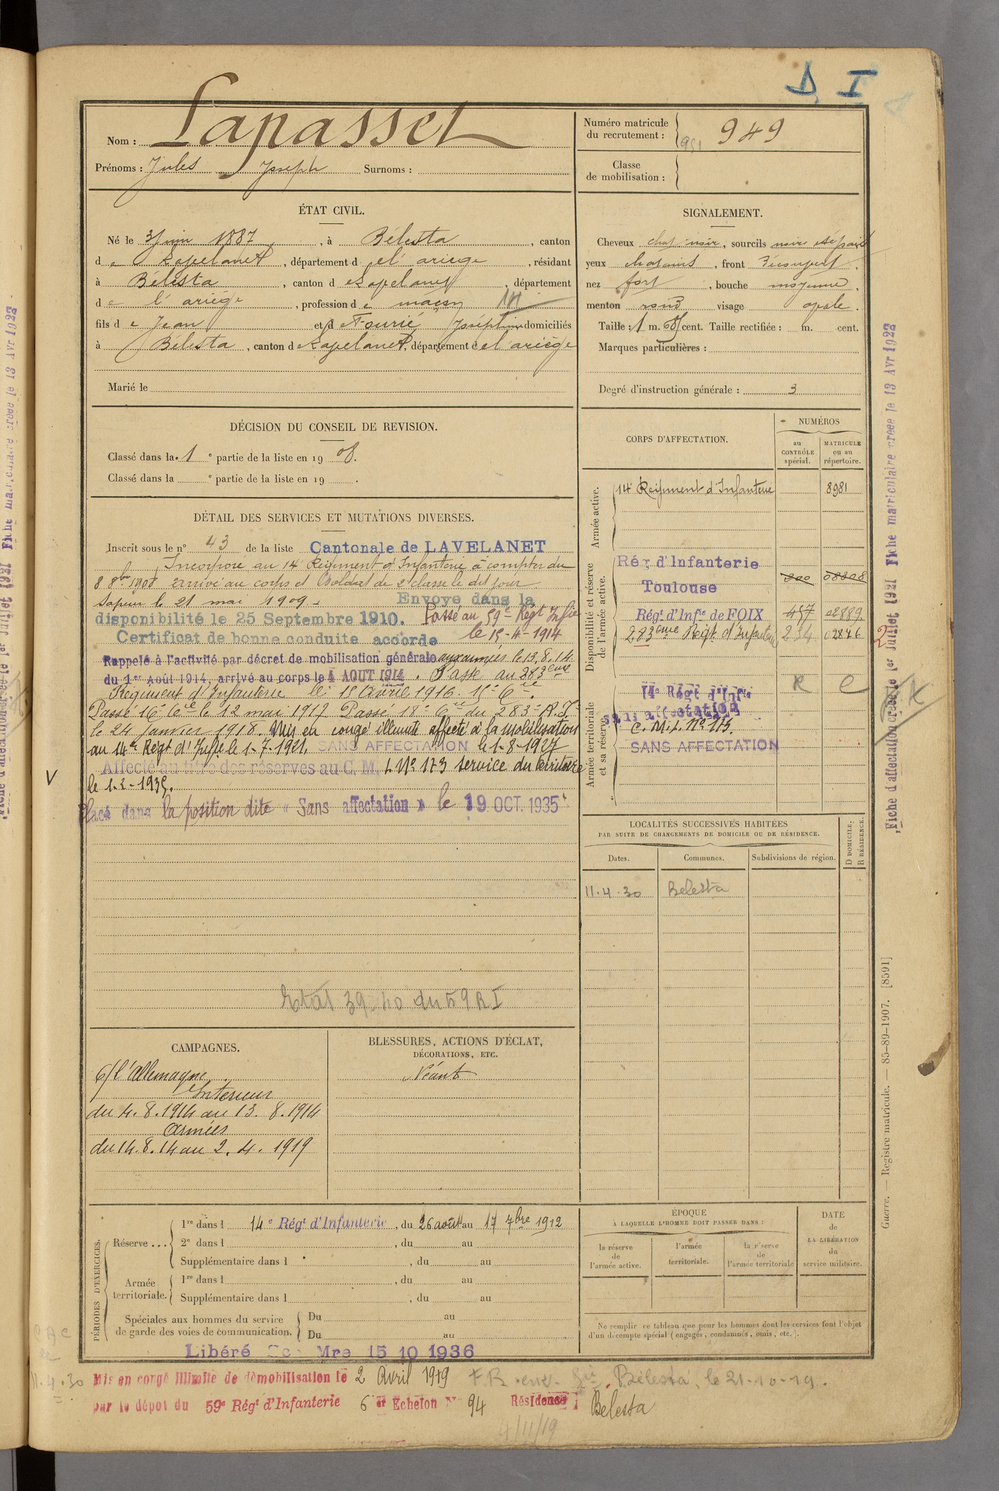 D I
Nom : Lapasset
Prénoms : Jules Joseph Surnoms :
Numéro matricule du recrutement : 949
951
Classe de mobilisation :
ÉTAT CIVIL.
Né le 3 juin 1887, à Bélesta, canton
de Lapelanet, département de l'ariège, résidant
à Bélesta, canton de Lapelanet, département
de l'ariège, profession de maçon
fils de Jean et de Fourié Joséphine domiciliés
à Bélesta, canton de Lapelanet, département de l'ariège
Marié le
SIGNALEMENT.
Cheveux chat noir, sourcils noirs
yeux chatains, front Découvert,
nez fort, bouche moyenne,
menton rond visage ovale
Taille 1 m. 65 cent. Taille rectifiée : m. cent.
Marques particulières :
Degré d'instruction générale : 3
DÉCISION DU CONSEIL DE REVISION.
Classé dans la 1e partie de la liste en 1908.
Classé dans la e partie de la liste en 19 .
DÉTAIL DES SERVICES ET MUTATIONS DIVERSES.
Inscrit sous le n° 43 de la liste Cantonale de LAVELANET
Incorporé au 14e Régiment d'Infanterie à compter du
8 8bre 1908 arrivé au corps et soldat de 2e classe le dit jour
Sapeur le 21 mai 1909. Envoyé dans la
disponibilité le 25 Septembre 1910. Passé au 59e Régt Infie
Certificat de bonne conduite accordé le 15-4-1914
Rappelé à l'activité par décret de mobilisation générale aux armées le 13.8.14
du 1er Août 1914, arrivé au corps le 4 AOUT 1914. Passé au 283eme
Régiment d'Infanterie le 1er Avril 1916. 15e Cie.
Passé 16e Cie le 12 mai 1917 Passé 18e Cie du 283e R.I.
le 24 janvier 1918. Mis en congé illimité affecté à la mobilisation
au 14e Régt d'Infie le 1-7-1921. SANS AFFECTATION le 1-8-1927
V
Affecté au titre des réserves au C. M. I. N° 173 service du territoire
le 1-2-1935.
Placé dans la position dite « Sans affectation » le 19 OCT. 1935
Etat 39-40 du 59 RI
CORPS D'AFFECTATION.
NUMÉROS
au CONTRÔLE spécial.
MATRICULE ou au répertoire.
Armée active.
14e Régiment d'Infanterie 8981
Disponibilité et réserve de l'armée active.
Rég d'Infanterie
Toulouse
Rég. d'Infie de FOIX 457 02889
283eme Régt d'Infanterie 234 02846
R C
Armée territoriale et sa réserve
14e Régt d'Infie
sans affectation
C. M. I. N° 173.
SANS AFFECTATION
LOCALITÉS SUCCESSIVES HABITÉES
PAR SUITE DE CHANGEMENTS DE DOMICILE OU DE RÉSIDENCE.
Dates. Communes. Subdivisions de région. D DOMICILE, R RÉSIDENCE.
11.4.30 Belesta
CAMPAGNES.
C/ l'Allemagne
Intérieur
du 4.8.1914 au 13.8.1914
Armées
du 14.8.14 au 2.4.1919
BLESSURES, ACTIONS D'ÉCLAT,
DÉCORATIONS, ETC.
Néant
PÉRIODES D'EXERCICES.
Réserve ...
1re dans l 14e Régt d'Infanterie, du 26 août au 17 7bre 1912
2e dans l , du au
Supplémentaire dans l , du au
Armée territoriale.
1re dans l , du au
Supplémentaire dans l , du au
Spéciales aux hommes du service de garde des voies de communication.
Du au
Du au
ÉPOQUE
À LAQUELLE L'HOMME DOIT PASSER DANS :
la réserve de l'armée active.
l'armée territoriale.
la réserve de l'armée territoriale
DATE de LA LIBÉRATION du service militaire.
Ne remplir ce tableau que pour les hommes dont les services font l'objet
d'un décompte spécial (engagés, condamnés, omis, etc.).
Libéré 15 10 1936
Mis en congé illimité de démobilisation le 2 Avril 1919 Bélesta, le 21-10-19.
par le dépot du 59e Régt d'Infanterie 6e Echelon N° 94 Résidence : Belesta
4/11/19
11-4-30
Fiche d'affectation créée le 1er Juillet 1921 Fiche matriculaire créée le 13 Avr 1922
Guerre. — Registre matricule. — 85-89-1907. [8591]